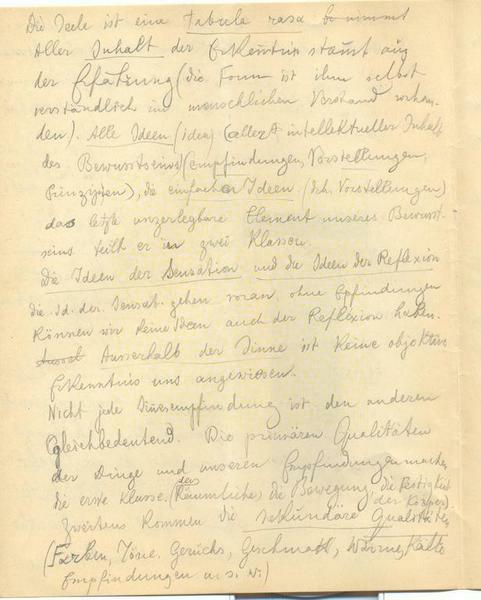 Die Seele ist eine tabula rasa
Aller Inhalt der Erkenntnis stamt aus
der Erfahrung (die Form ist ihm selbst
verständlich im menschlichen Verstand vorhan-
den). Alle Ideen (idea) (aller intellektueller Inhalt
des Bewusstseins) (Empfindungen, Vorstellungen,
Prinzipien), die einfachen Ideen (d.h. Vorstellungen)
das letzte unzerlegbare Element unseres Bewusst-
seins teilt er in zwei Klassen.
Die Ideen der Sensation und die Ideen der Reflexion
die Id. der Sensat. gehen voran, ohne Epfindungen
können wir keine Ideen auch der Reflexion haben.
Ausserhalb der Sinne ist keine objektive
Erkenntnis uns angewiesen.
Nicht jede Sinesempfindung ist den anderen
gleichbedeutend. Die primären Qualitäten
der Dinge und unseren Empfindungen machen
die erste Klasse. (das Räumliche, die Bewegung, die Festigkeit
der Körper)
Zweitens kommen die sekundäre Qualitäten
(Farben, Töne, Geruchs, Geschmack, Wärme, Kälte
Empfindungen u.s.w.)